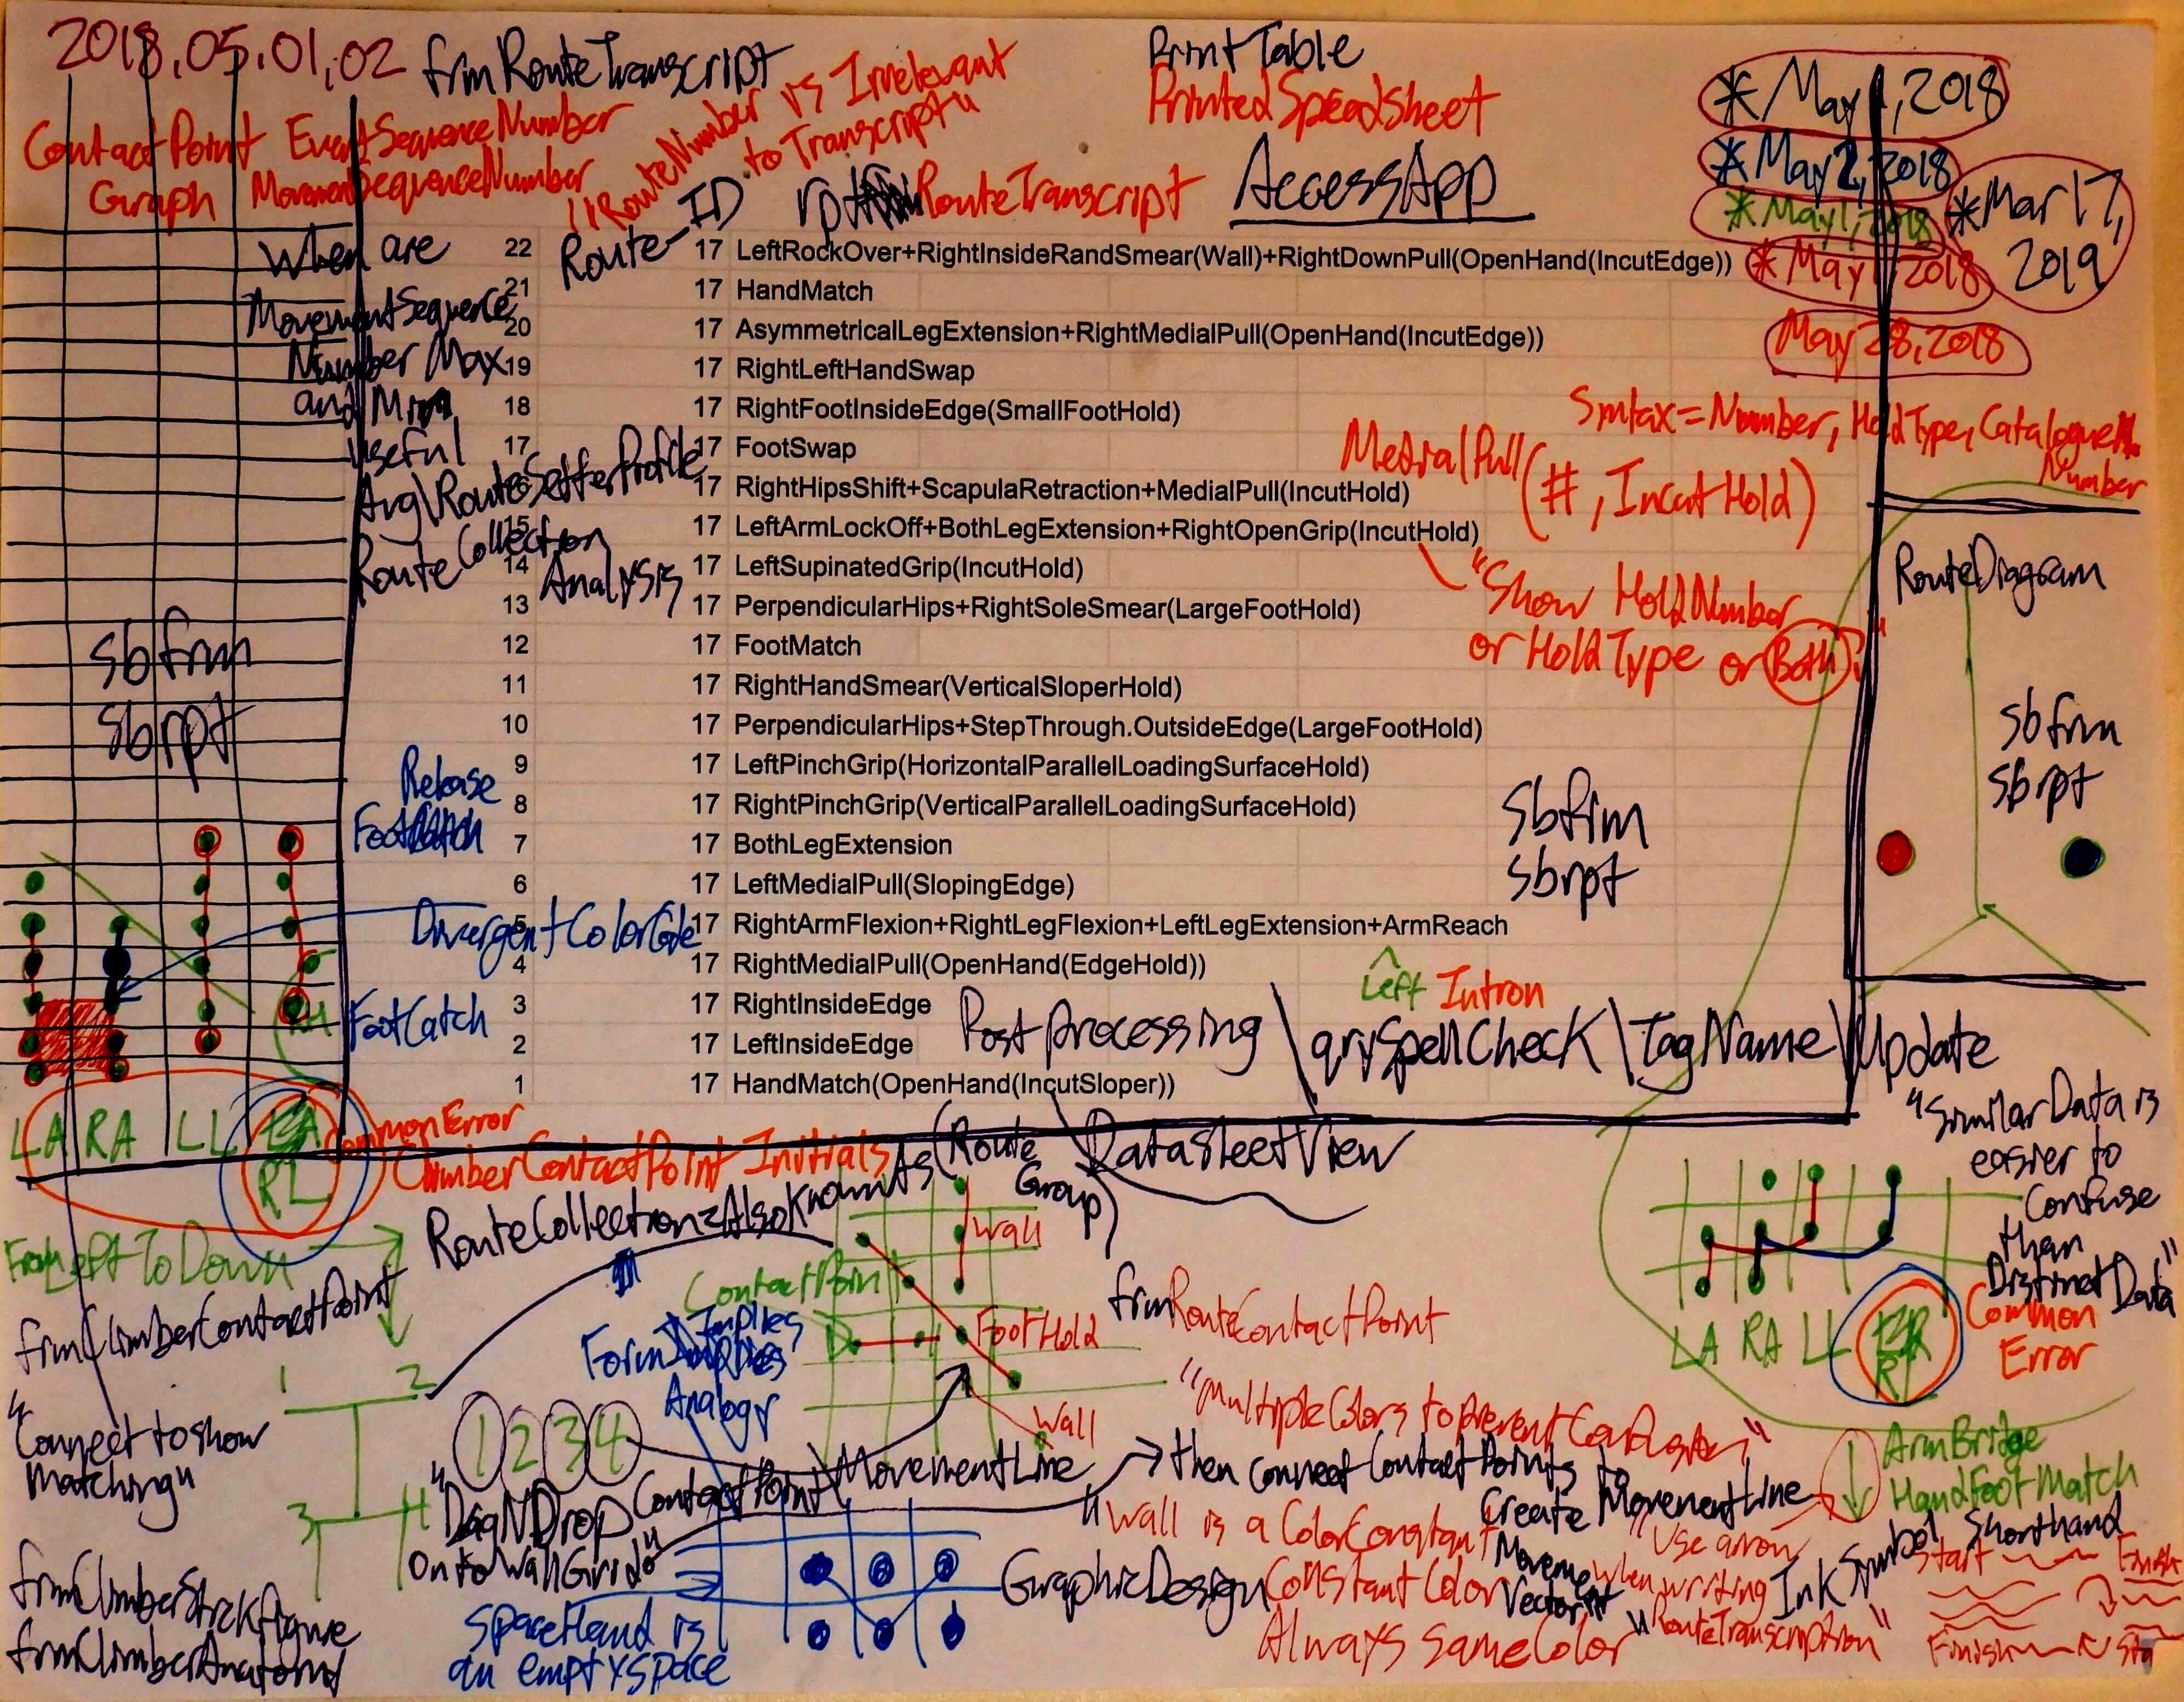 2018.05.01,02 frmRouteTranscript
PrintTable
PrintedSpeadsheet
*May 1, 2018
*May 2, 2018
*May 1, 2018
*May 1, 2018
*Mar 17, 2019
May 28, 2018
ContactPoint Graph
EventSequenceNumber
MovementSequenceNumber
"RouteNumber is Irrelevant
to Transcript"
Route-ID
rpt RouteTranscript AccessApp
When are
MovementSequence
Number Max
and Min
useful
Avg\RouteSetterProfile
RouteCollection
Analysis
22 17 LeftRockOver+RightInsideRandSmear(Wall)+RightDownPull(OpenHand(IncutEdge))
21 17 HandMatch
20 17 AsymmetricalLegExtension+RightMedialPull(OpenHand(IncutEdge))
19 17 RightLeftHandSwap
18 17 RightFootInsideEdge(SmallFootHold)
17 17 FootSwap
17 RightHipsShift+ScapulaRetraction+MedialPull(IncutHold)
15 17 LeftArmLockOff+BothLegExtension+RightOpenGrip(IncutHold)
14 17 LeftSupinatedGrip(IncutHold)
13 17 PerpendicularHips+RightSoleSmear(LargeFootHold)
12 17 FootMatch
11 17 RightHandSmear(VerticalSloperHold)
10 17 PerpendicularHips+StepThrough.OutsideEdge(LargeFootHold)
9 17 LeftPinchGrip(HorizontalParallelLoadingSurfaceHold)
8 17 RightPinchGrip(VerticalParallelLoadingSurfaceHold)
7 17 BothLegExtension
6 17 LeftMedialPull(SlopingEdge)
5 17 RightArmFlexion+RightLegFlexion+LeftLegExtension+ArmReach
4 17 RightMedialPull(OpenHand(EdgeHold))
3 17 RightInsideEdge
2 17 LeftInsideEdge
1 17 HandMatch(OpenHand(IncutSloper))
Syntax=Number, HoldType, Catalogue
Number
MedialPull(#, IncutHold)
"Show HoldNumber
or HoldType or Both?"
RouteDiagram
sbfrm
sbrpt
sbfrm
sbrpt
sbfrm
sbrpt
Release
Foot
DivergentColorCode
FootCatch
Left Intron
PostProcessing\qrySpellCheck\TagName\Update
LA RA LL
RL
CommonError
ClimberContactPoint Initials
RouteCollection=AlsoKnownAs(Route
Group)
DatasheetView
"SimilarData is
easier to
Confuse
than
DistinctData"
From Left To Down
frmClimberContactPoint
ContactPoint
Wall
FootHold
Wall
frmRouteContactPoint
Form Implies
Analogy
LA RA LL
Common
Error
1 2
3 4
"Connect to show
Matching"
1 2 3 4
"MultipleColors to prevent Confusion"
"DragNDrop ContactPoint\MovementLine
OntoWallGrid"
then connect ContactPoints to
Create MovementLine
ArmBridge
HandFootMatch
"Wall is a ColorConstant
ConstantColor
Always same Color
Vector
"Use arrow
when writing
RouteTranscription"
InkSymbol Shorthand
Start Finish
Finish Sta
frmClimberStickfigure
frmClimberAnatomy
SpaceHand is
an emptyspace
GraphicDesign